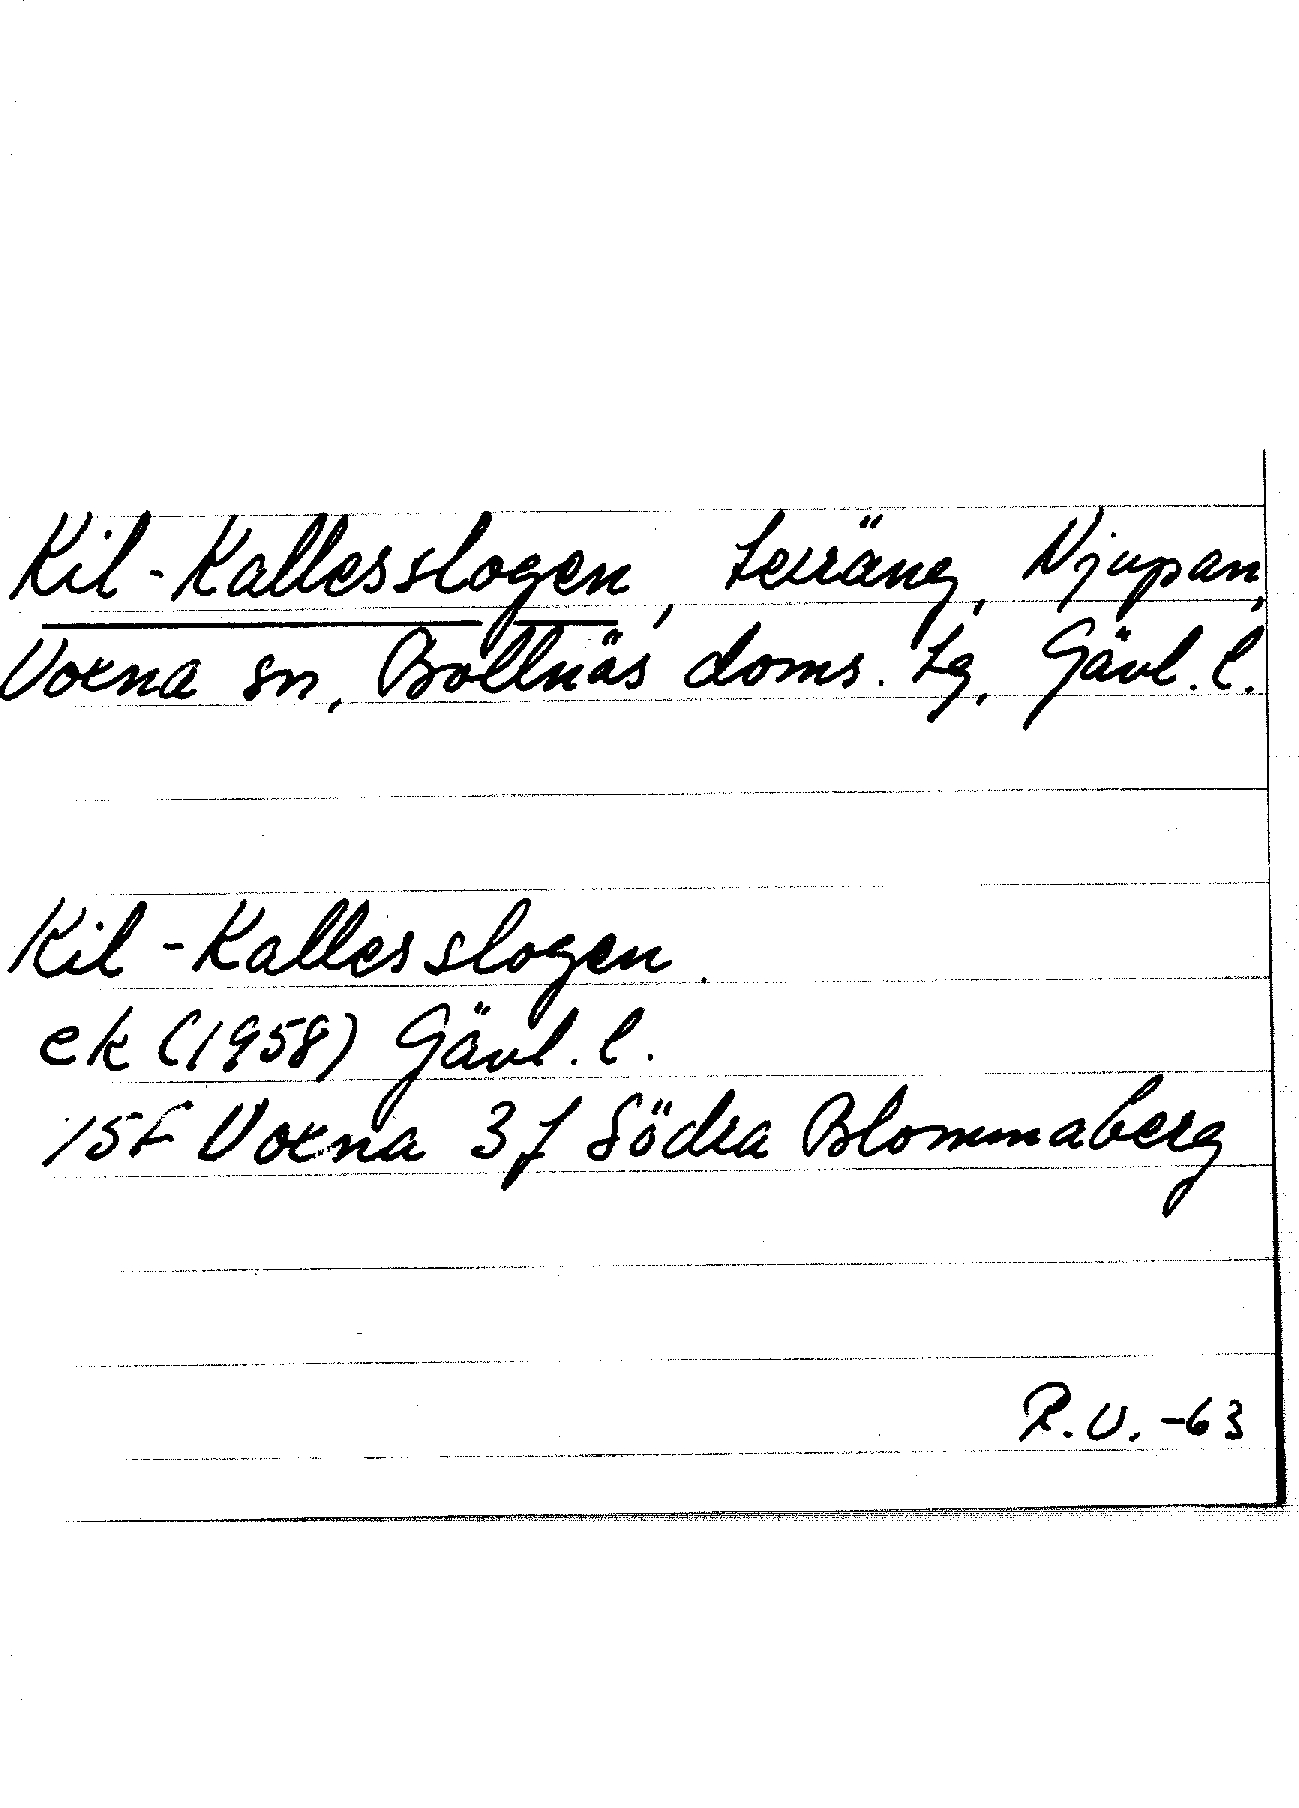 Kil-Kallesslogen, terräng, Njupan,
Voxna sn, Bollnäs doms. tg, Gävl. l.
Kil-Kallesslogen.
ek (1958) Gävl. l.
15f Voxna 3j Södra Blommaberg
R.V. -63